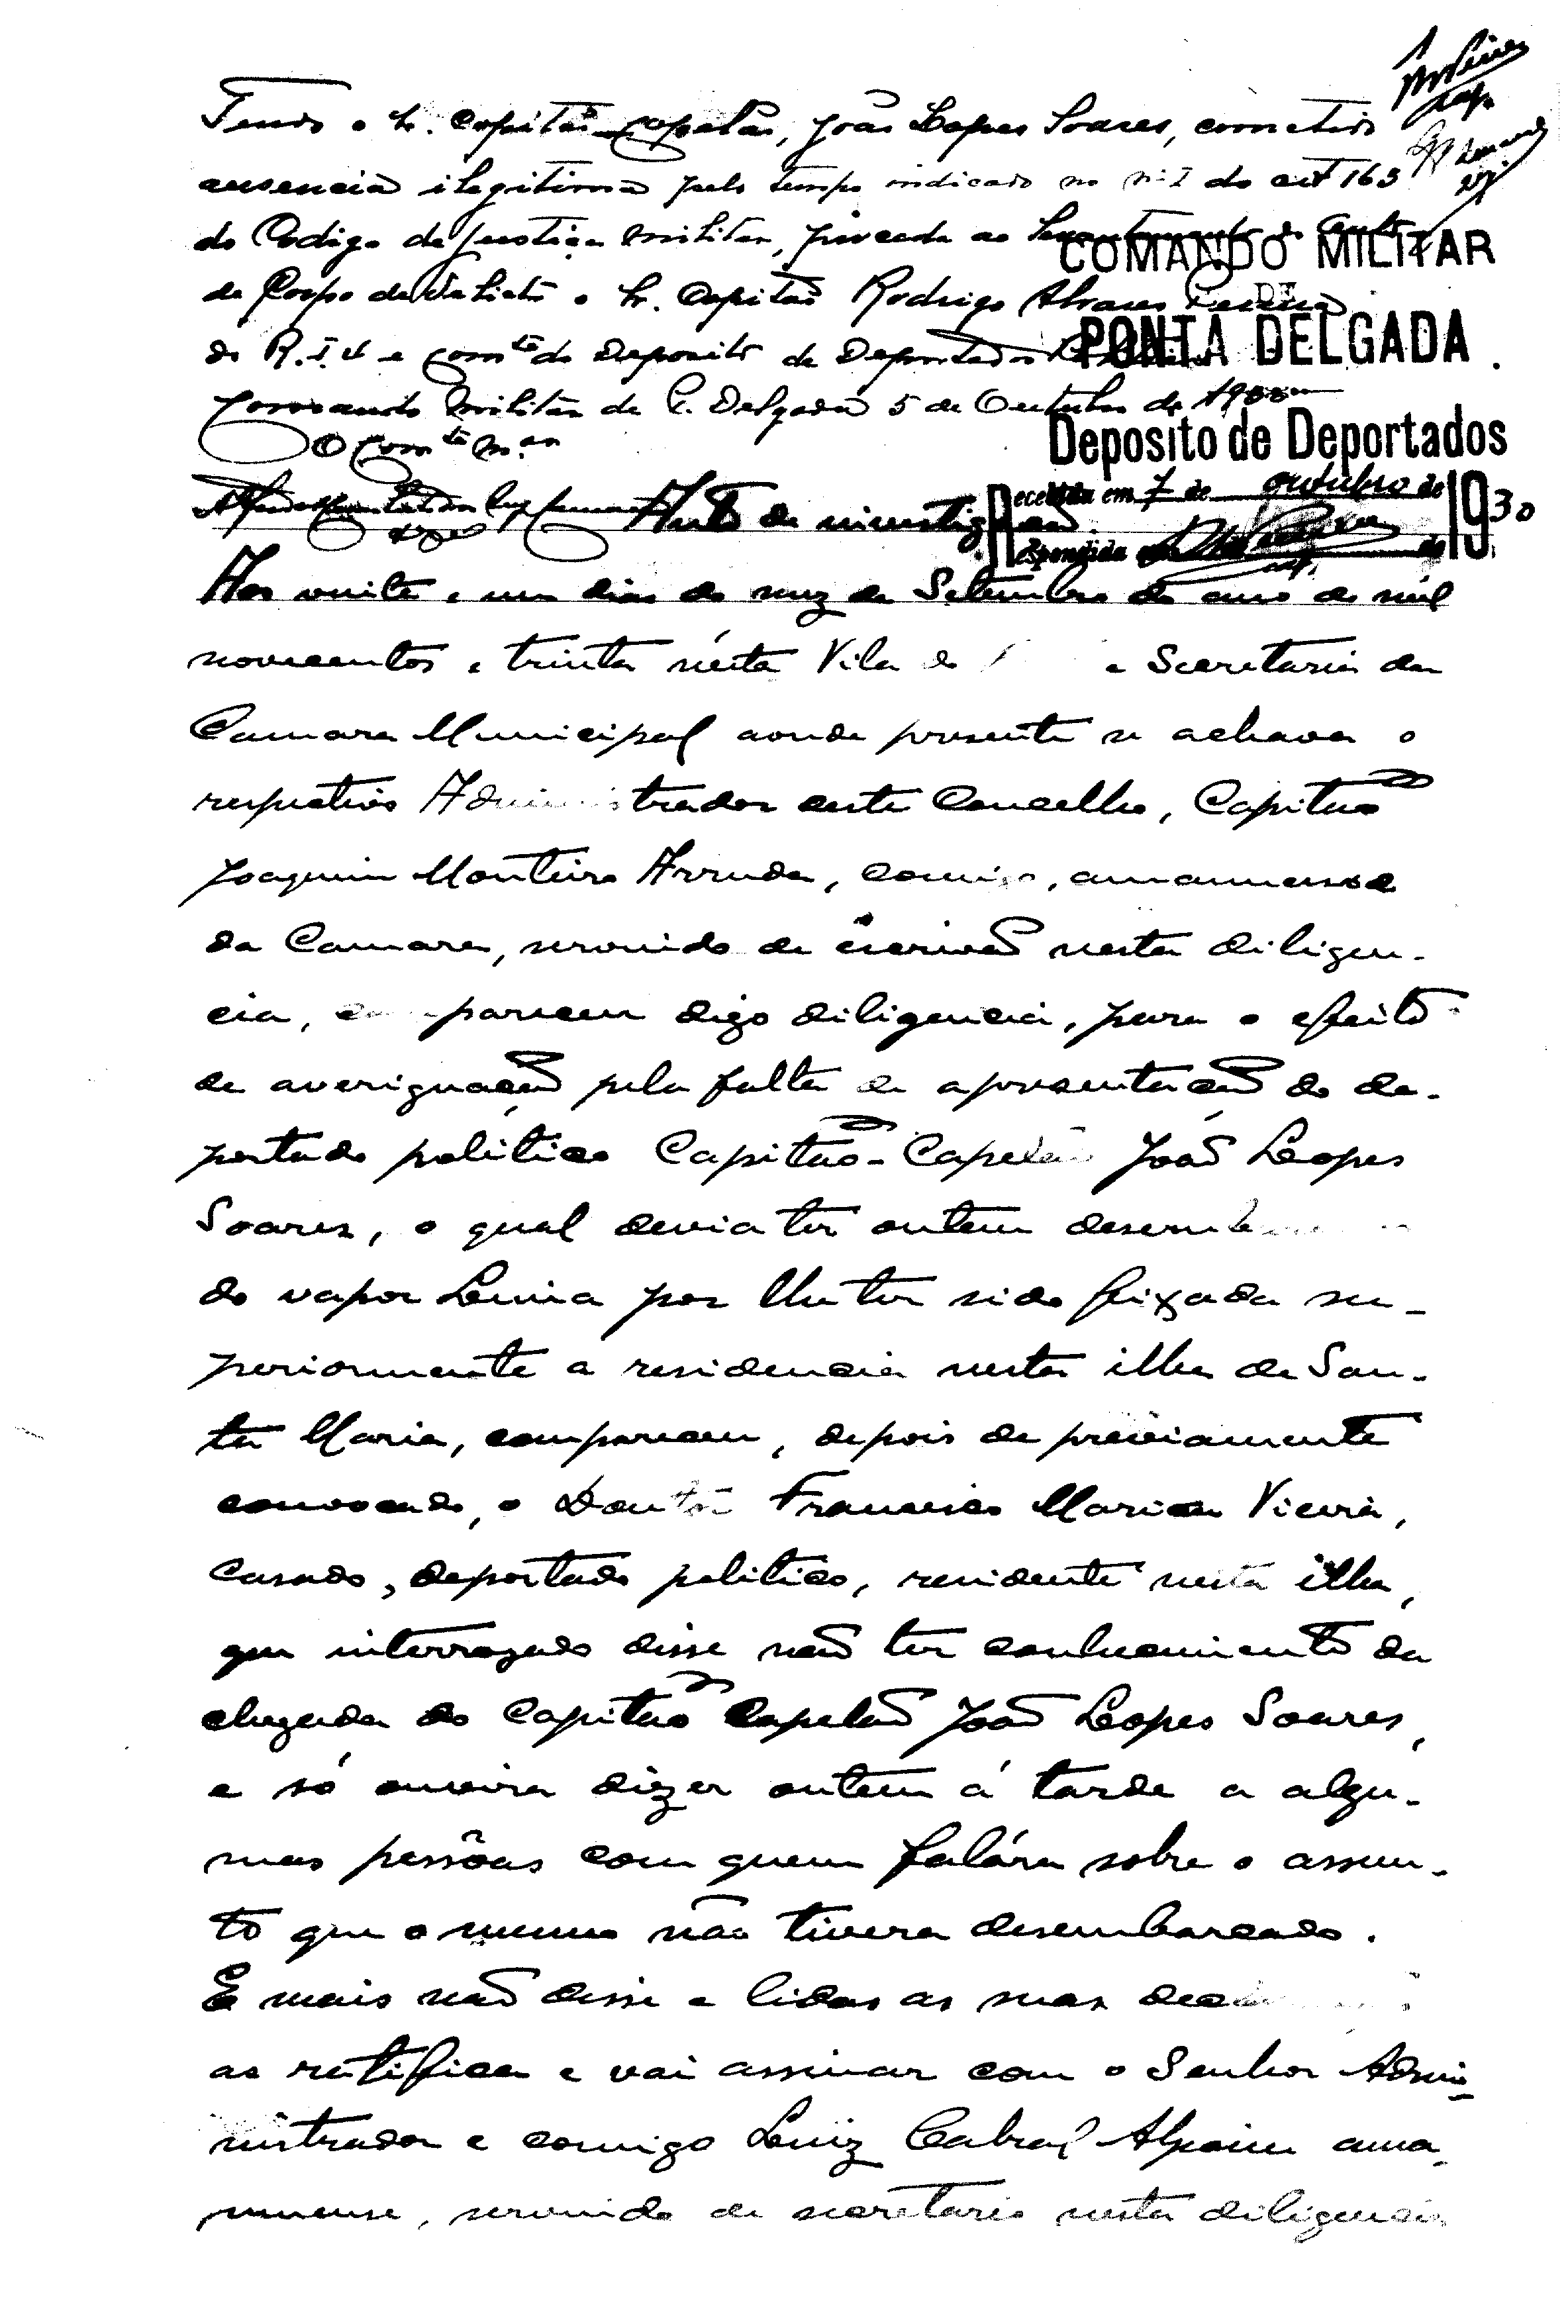 Tendo o Sr. Capitão capelão, João Lopes Soares, cometido
ausencia ilegitima pelo tempo indicado no nº I do art 165
do Codigo de Justiça Militar, proceda ao levantamento do auto
de Corpo de Delicto o Sr. Capitão Rodrigo Alvares Pereira
do R.I.4 e Comte do Deposito de Deportados
Comando Militar de P. Delgada 5 de Outubro de 1930
O Comte M.ar
COMANDO MILITAR
DE
PONTA DELGADA
Deposito de Deportados
Recebida em 7 de outubro de 1930
Expedida em de 19
Auto de investigação
Aos vinte e um dias do mez de Setembro do ano de mil
novecentos e trinta nésta Vila do e Secretaria da
Camara Municipal aonde presente se achava o
respectivo Administrador deste Concelho, Capitão
Joaquim Monteiro Arruda, comigo, amanuense
da Camara, servindo de escrivão nesta diligen-
cia, compareceu digo diligencia, para o efeito
de averiguação pela falta de apresentação do de-
portado politico Capitão-Capelão João Lopes
Soares, o qual devia ter ontem desembarcado
do vapor Lima por lhe ter sido fixada su-
periormente a residencia nesta ilha de San-
ta Maria, compareceu, depois de préviamente
convocado, o Doutor Francisco Maria Vieira,
casado, deportado politico, residente nesta ilha,
que interrogado disse não ter conhecimento da
chegada do Capitão Capelão João Lopes Soares,
e só ouvira dizer ontem á tarde a algu-
mas pessôas com quem falára sobre o assun-
to que o mesmo não tivera desembarcado.
E mais não disse e lidas as suas declarações
as ratifica e vai assinar com o Senhor Admi-
nistrador e comigo Luiz Cabral Alpoim ama-
nuense, servindo de secretario nesta diligencia